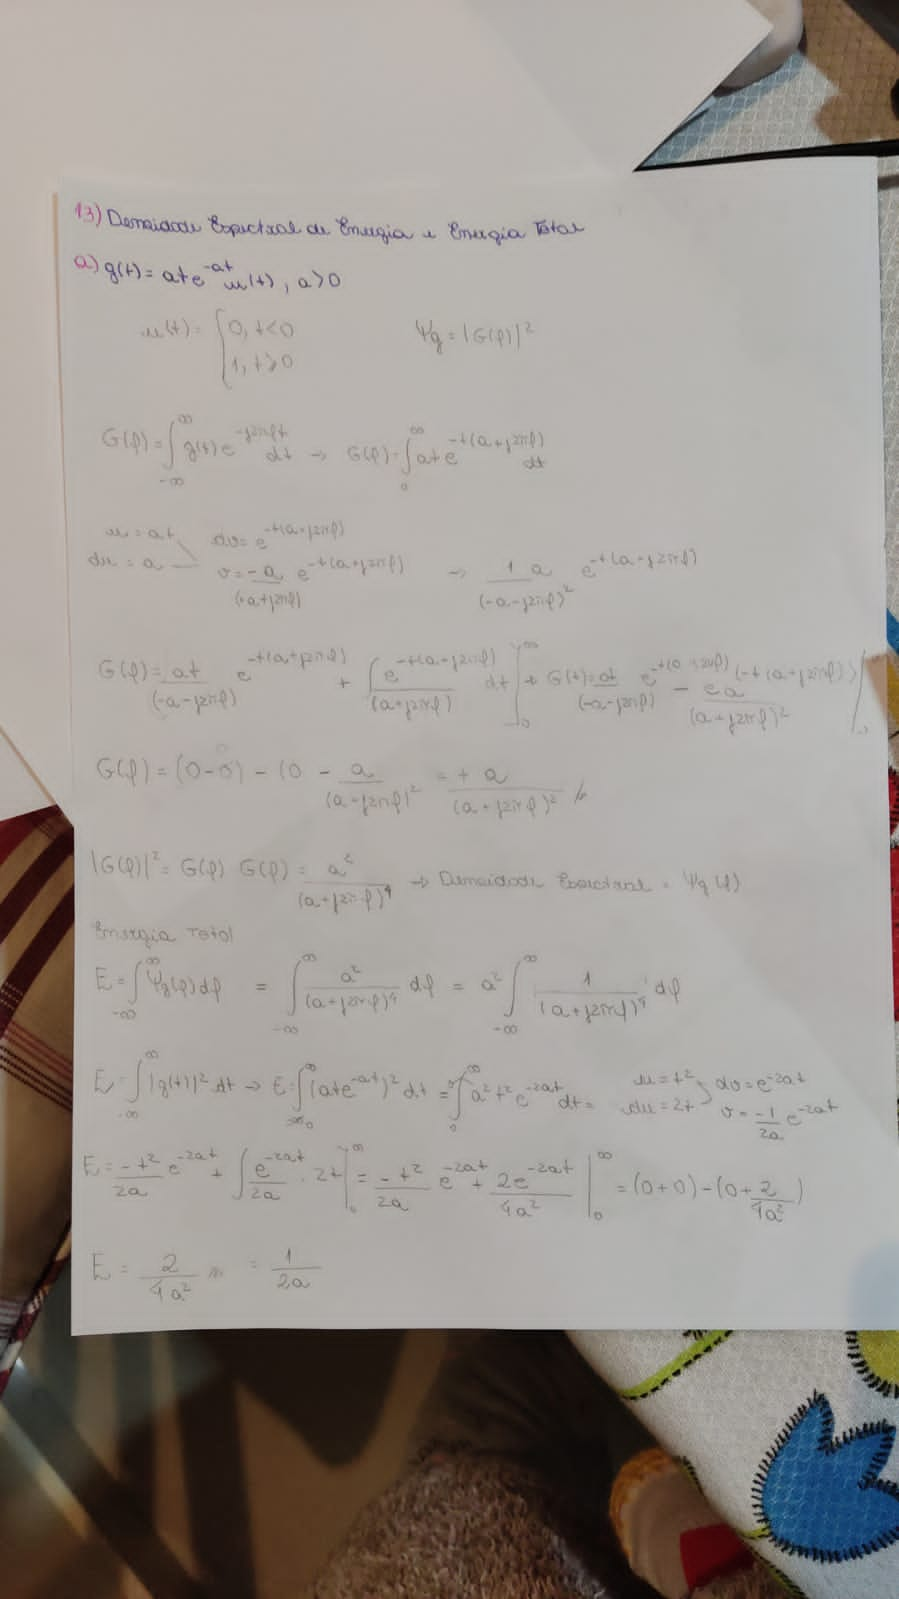 13) Densidade Espectral de Energia e Energia Total
a) g(t) = ate^{-at} u(t), a>0
u(t) = {0, t<0
1, t≥0
Ψg = |G(f)|²
G(f) = ∫_{-∞}^{∞} g(t) e^{-j2πft} dt → G(f) = ∫_0^∞ at e^{-t(a+j2πf)} dt
u = at dv = e^{-t(a+j2πf)}
du = a v = -a/(a+j2πf) e^{-t(a+j2πf)} → 1 a/(-a-j2πf)² e^{-t(a-j2πf)}
G(f) = at/(-a-j2πf) e^{-t(a+j2πf)} + ∫ e^{-t(a-j2πf)}/(a+j2πf) dt |_0^∞ G(t) = at/(-a-j2πf) e^{-t(a+j2πf)} - ea/(a+j2πf)² (-t(a+j2πf)) |_0^∞
G(f) = (0-0) - (0 - a/(a-j2πf)² = + a/(a+j2πf)²
|G(f)|² = G(f) G(f) = a²/(a+j2πf)⁴ → Densidade Espectral = Ψg(f)
Energia Total
E = ∫_{-∞}^{∞} Ψg(f) df = ∫_{-∞}^{∞} a²/(a+j2πf)⁴ df = a² ∫_{-∞}^{∞} 1/(a+j2πf)⁴ df
E = ∫_{-∞}^{∞} |g(t)|² dt → E = ∫_0^∞ (ate^{-at})² dt = ∫_0^∞ a²t² e^{-2at} dt = u = t² dv = e^{-2at}
du = 2t v = -1/2a e^{-2at}
E = -t²/2a e^{-2at} + ∫ e^{-2at}/2a · 2t |_0^∞ = -t²/2a e^{-2at} + 2e^{-2at}/4a² |_0^∞ = (0+0) - (0+2/4a²)
E = 2/4a² = 1/2a